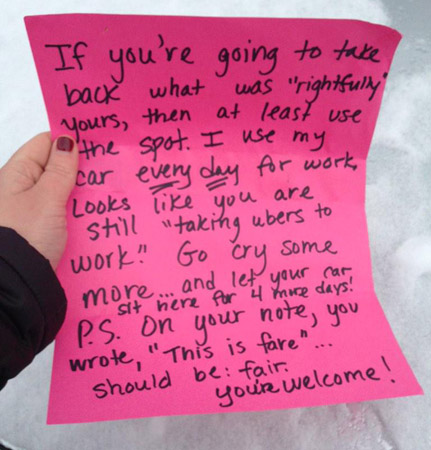 If you're going to take
back what was "rightfully"
yours, then at least use
the spot. I use my
car every day for work.
Looks like you are
still "taking ubers to
work." Go cry some
more... and let your car
sit here for 4 more days!
P.S. On your note, you
wrote, "This is fare"...
should be: fair.
you're welcome!